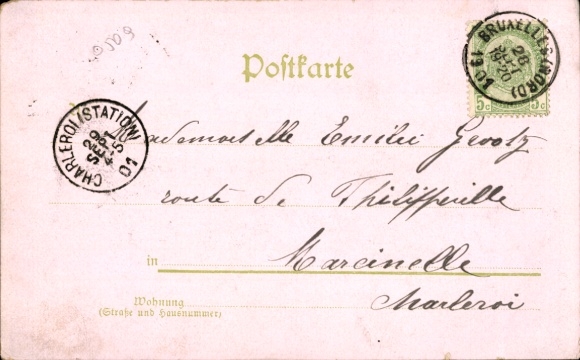 Postkarte
BRUXELLES (NORD)
1901
28
SEPT
19-20
5c 5c
CHARLEROI (STATION)
29
SEPT
4-5
01
Mademoiselle Emilie
route de Philippeville
in Marcinelle
Charleroi
Wohnung
(Straße und Hausnummer)